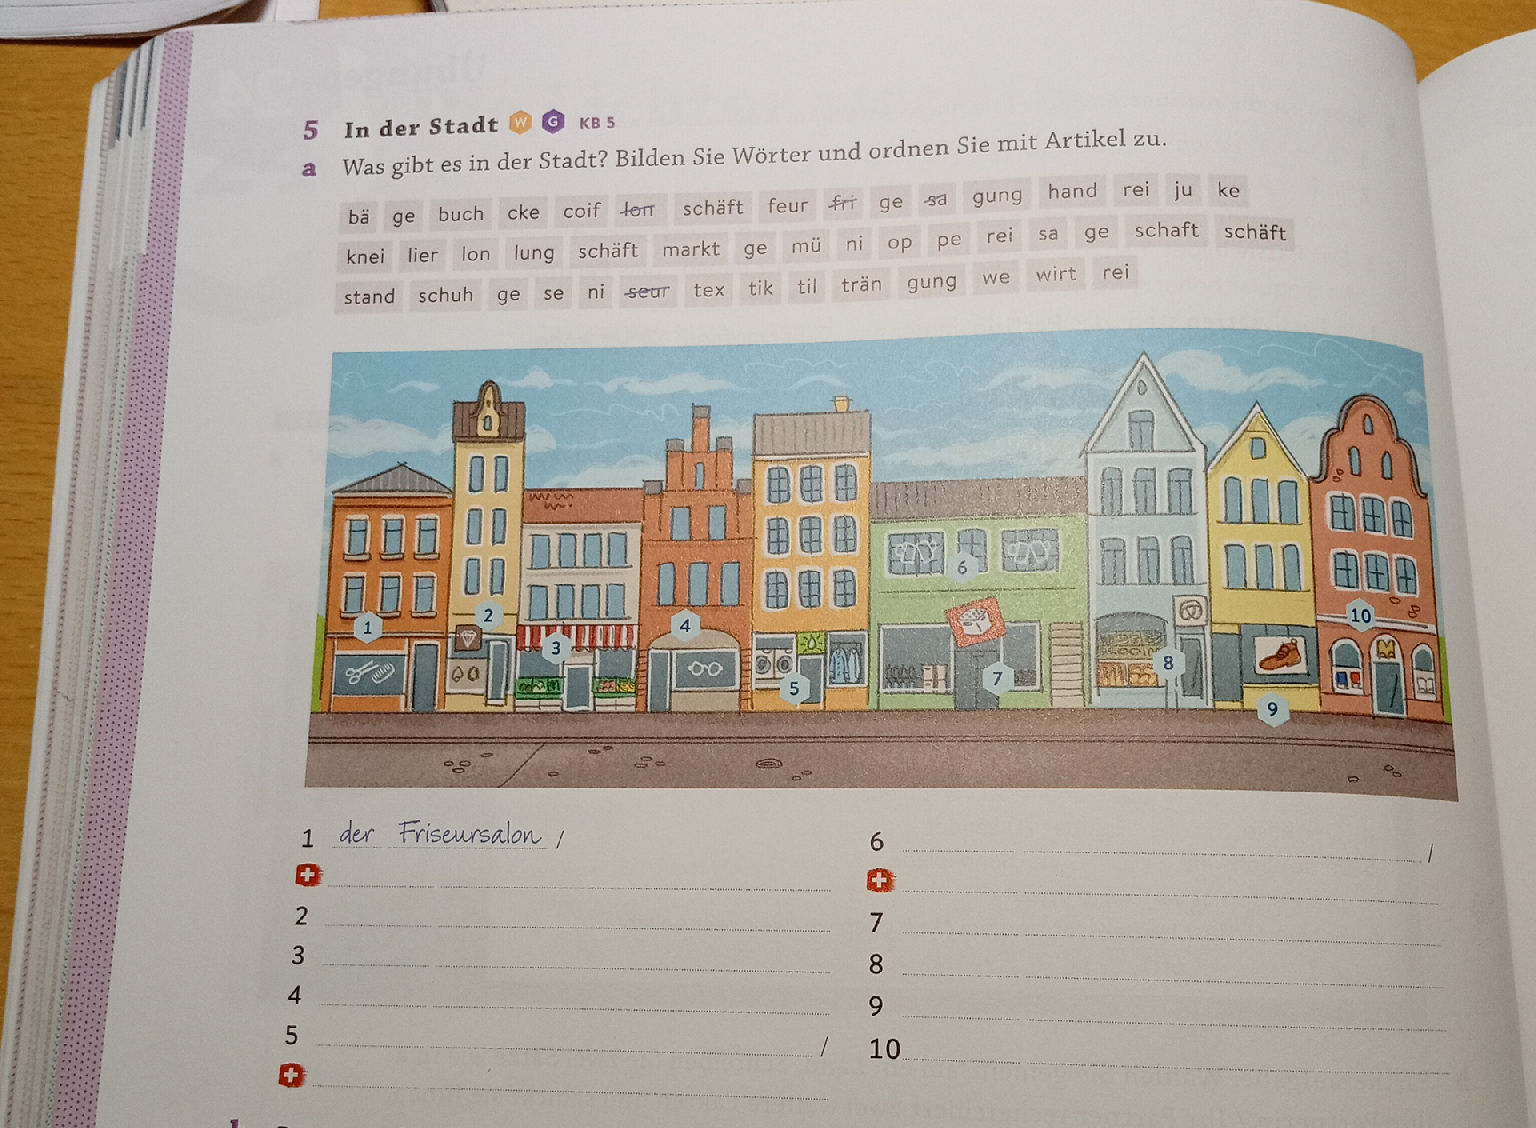 5 In der Stadt W G KB 5
a Was gibt es in der Stadt? Bilden Sie Wörter und ordnen Sie mit Artikel zu.
bä ge buch cke coif lon schäft feur fri ge sa gung hand rei ju ke
knei lier lon lung schäft markt ge mü ni op pe rei sa ge schaft schäft
stand schuh ge se ni seur tex tik til trän gung we wirt rei
1 2 3 4 5 6 7 8 9 10
1 der Friseursalon /
2
3
4
5 /
6 /
7
8
9
10